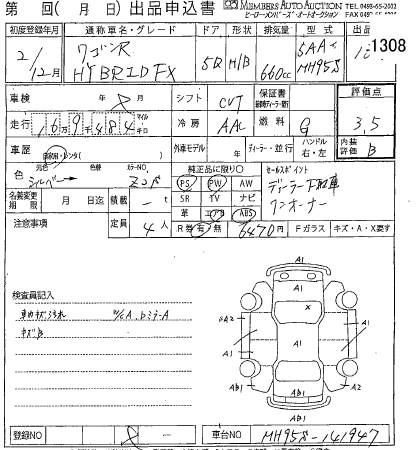 第 回( 月 日) 出品申込書 MEMBERS AUTO AUCTION TEL 0493-65-2102
ヒーローメンバーズ・オートオークション
初度登録年月 通称車名・グレード ドア 形状 排気量 型式 出品
2/12月 ワゴンR HYBRID FX 5D H/B 660cc 5AA MH95S 1308
車検 シフト CVT 保証書 評価点
走行 169484 マイル キロ 冷房 AAC 燃料 G 3.5
車歴 自家用・レンタ( ) 外車モデル ディーラー・並行 ハンドル 右・左 内装評価 B
色 元色 シルバー 色替 カラーNO 純正品に限り○ セールスポイント
PS PW AW ディーラー下取車
名義変更期限 月 日迄 積載 -t SR TV ナビ ワンオーナー
注意事項 定員 4人 革 エアB ABS
R券 有 無 6470円 Fガラス キズ・A・X要す
検査員記入
キズB
A1
A2
A1
X
A1
A1
AB1
A1
A2
AB1
登録NO - 車台NO MH95S-141947